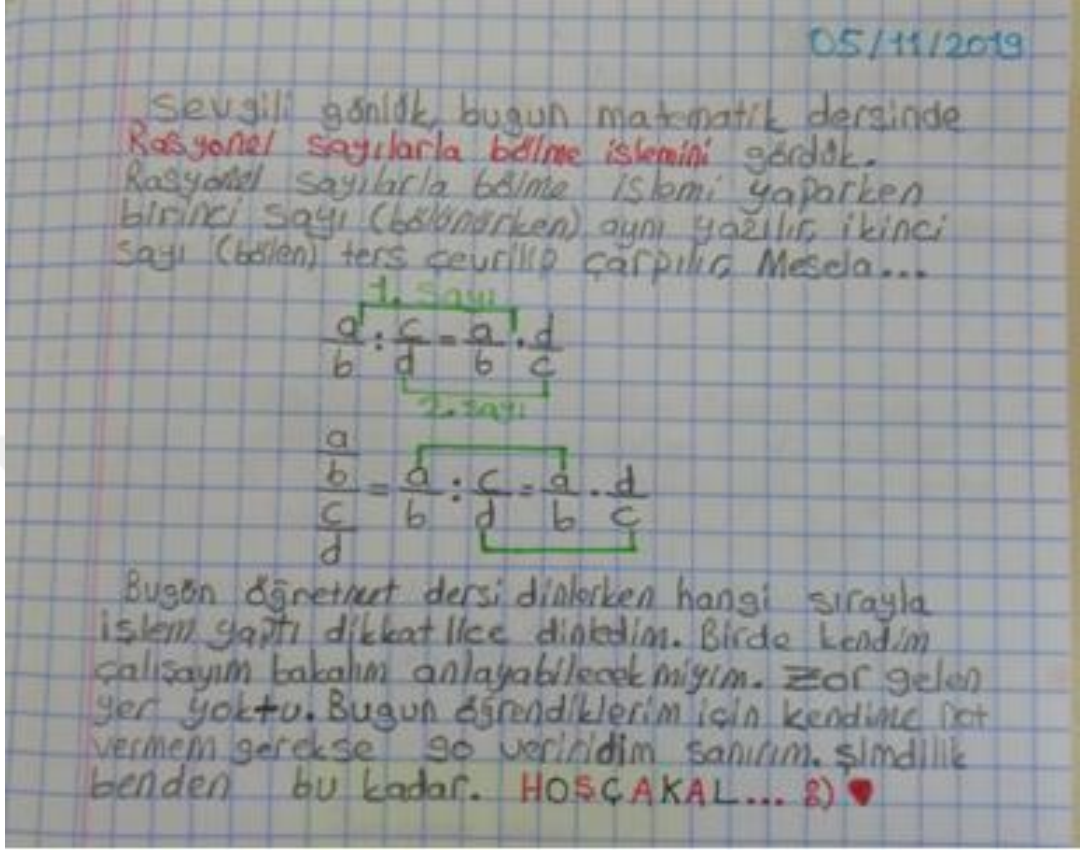 05/11/2019
Sevgili günlük, bugun matematik dersinde
Rasyonel sayılarla bölme işlemini gördük.
Rasyonel sayılarla bölme işlemi yaparken
birinci sayı (bölünürken) aynı yazılır, ikinci
sayı (bölen) ters çevrilip çarpılır. Mesela...
1. sayı
a/b : c/d = a/b · d/c
2. sayı
a/b / c/d = a/b : c/d = a/b · d/c
Bugün dersi dinlerken hangi sırayla
işlem yaptı dikkatlice dinledim. Birde kendim
çalışayım bakalım anlayabilecekmiyim. Zor gelen
yer yoktu. Bugun öğrendiklerim için kendime not
vermem gerekse 90 sanırım. Şimdilik
benden bu kadar. HOŞÇAKAL... 8) ♥